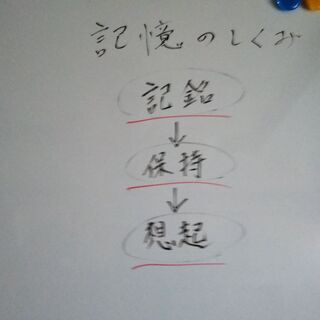 記憶のしくみ
記銘
保持
想起